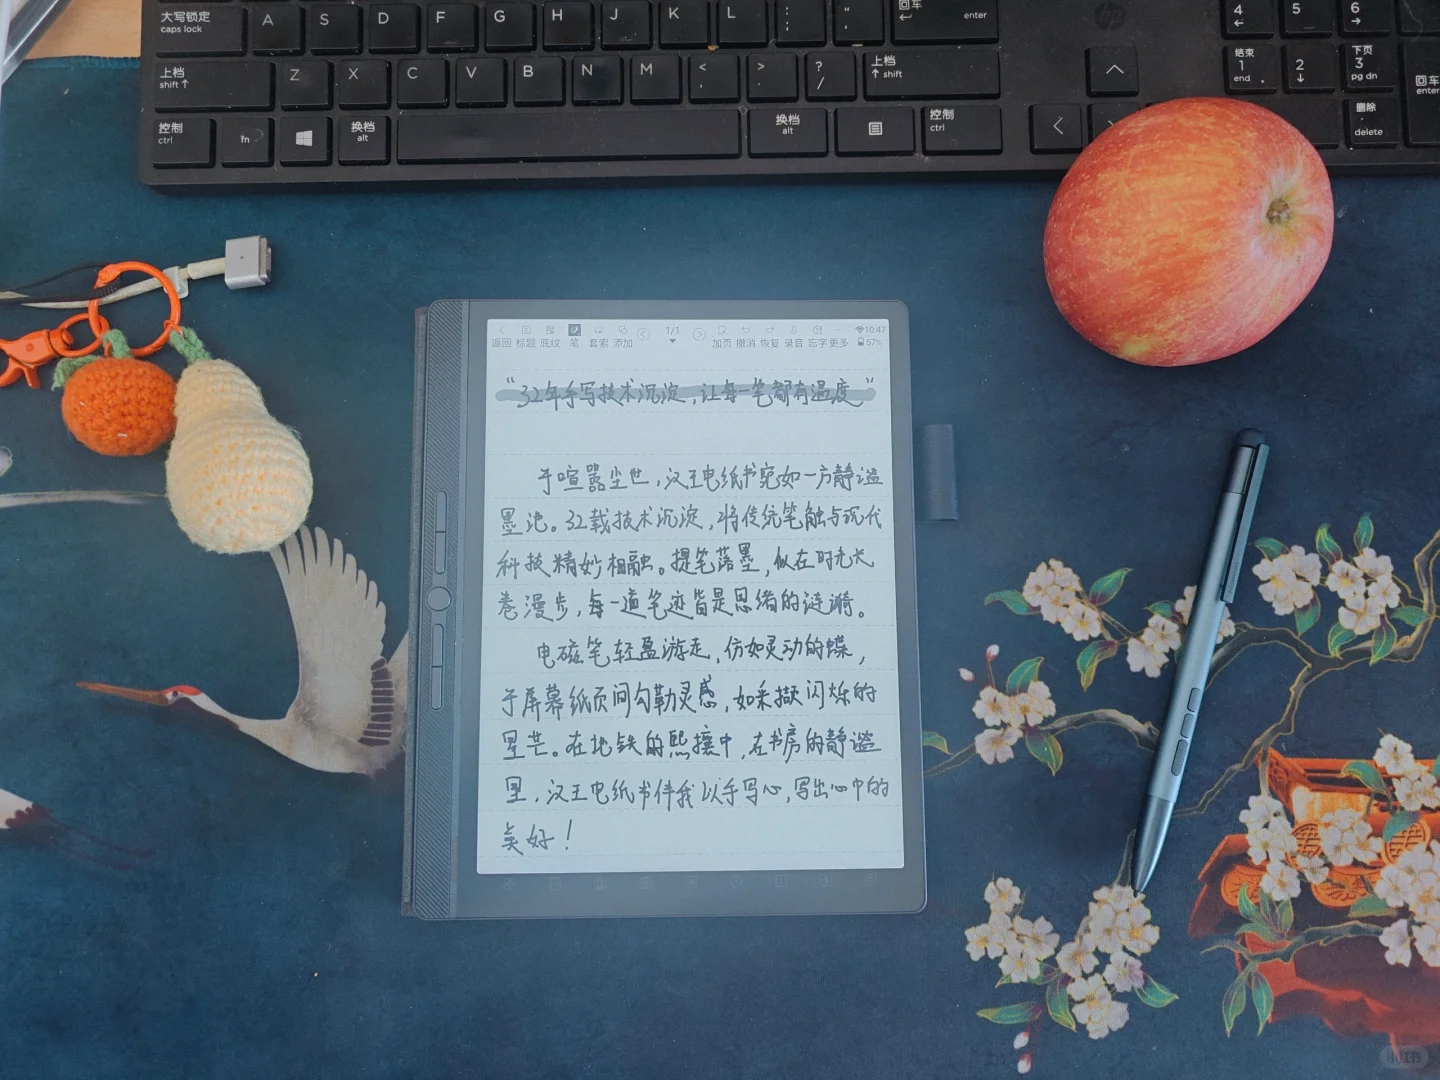 大写锁定
caps lock
A S D F G H J K L : ; " '
回车
enter
4 5 6
上档
shift
Z X C V B N M < , > . ? /
上档
shift
结束
1
end
2
下页
3
pg dn
回车
enter
控制
ctrl
fn
换档
alt
换档
alt
控制
ctrl
删除
.
delete
hp
1/1
10:47
返回 标题 底纹 笔 套索 添加 加页 撤消 恢复 录音 忘字 更多 57%
“32年手写技术沉淀，让每一笔都有温度”
于喧嚣尘世，汉王电纸书宛如一方静谧
墨池。32载技术沉淀，将传统笔触与现代
科技精妙相融。提笔落墨，似在时光长
卷漫步，每一道笔迹皆是思绪的涟漪。
电磁笔轻盈游走，仿如灵动的蝶，
于屏幕纸页间勾勒灵感，如采撷闪烁的
星芒。在地铁的熙攘中，在书房的静谧
里，汉王电纸书伴我以手写心，写出心中的
美好！
小红书